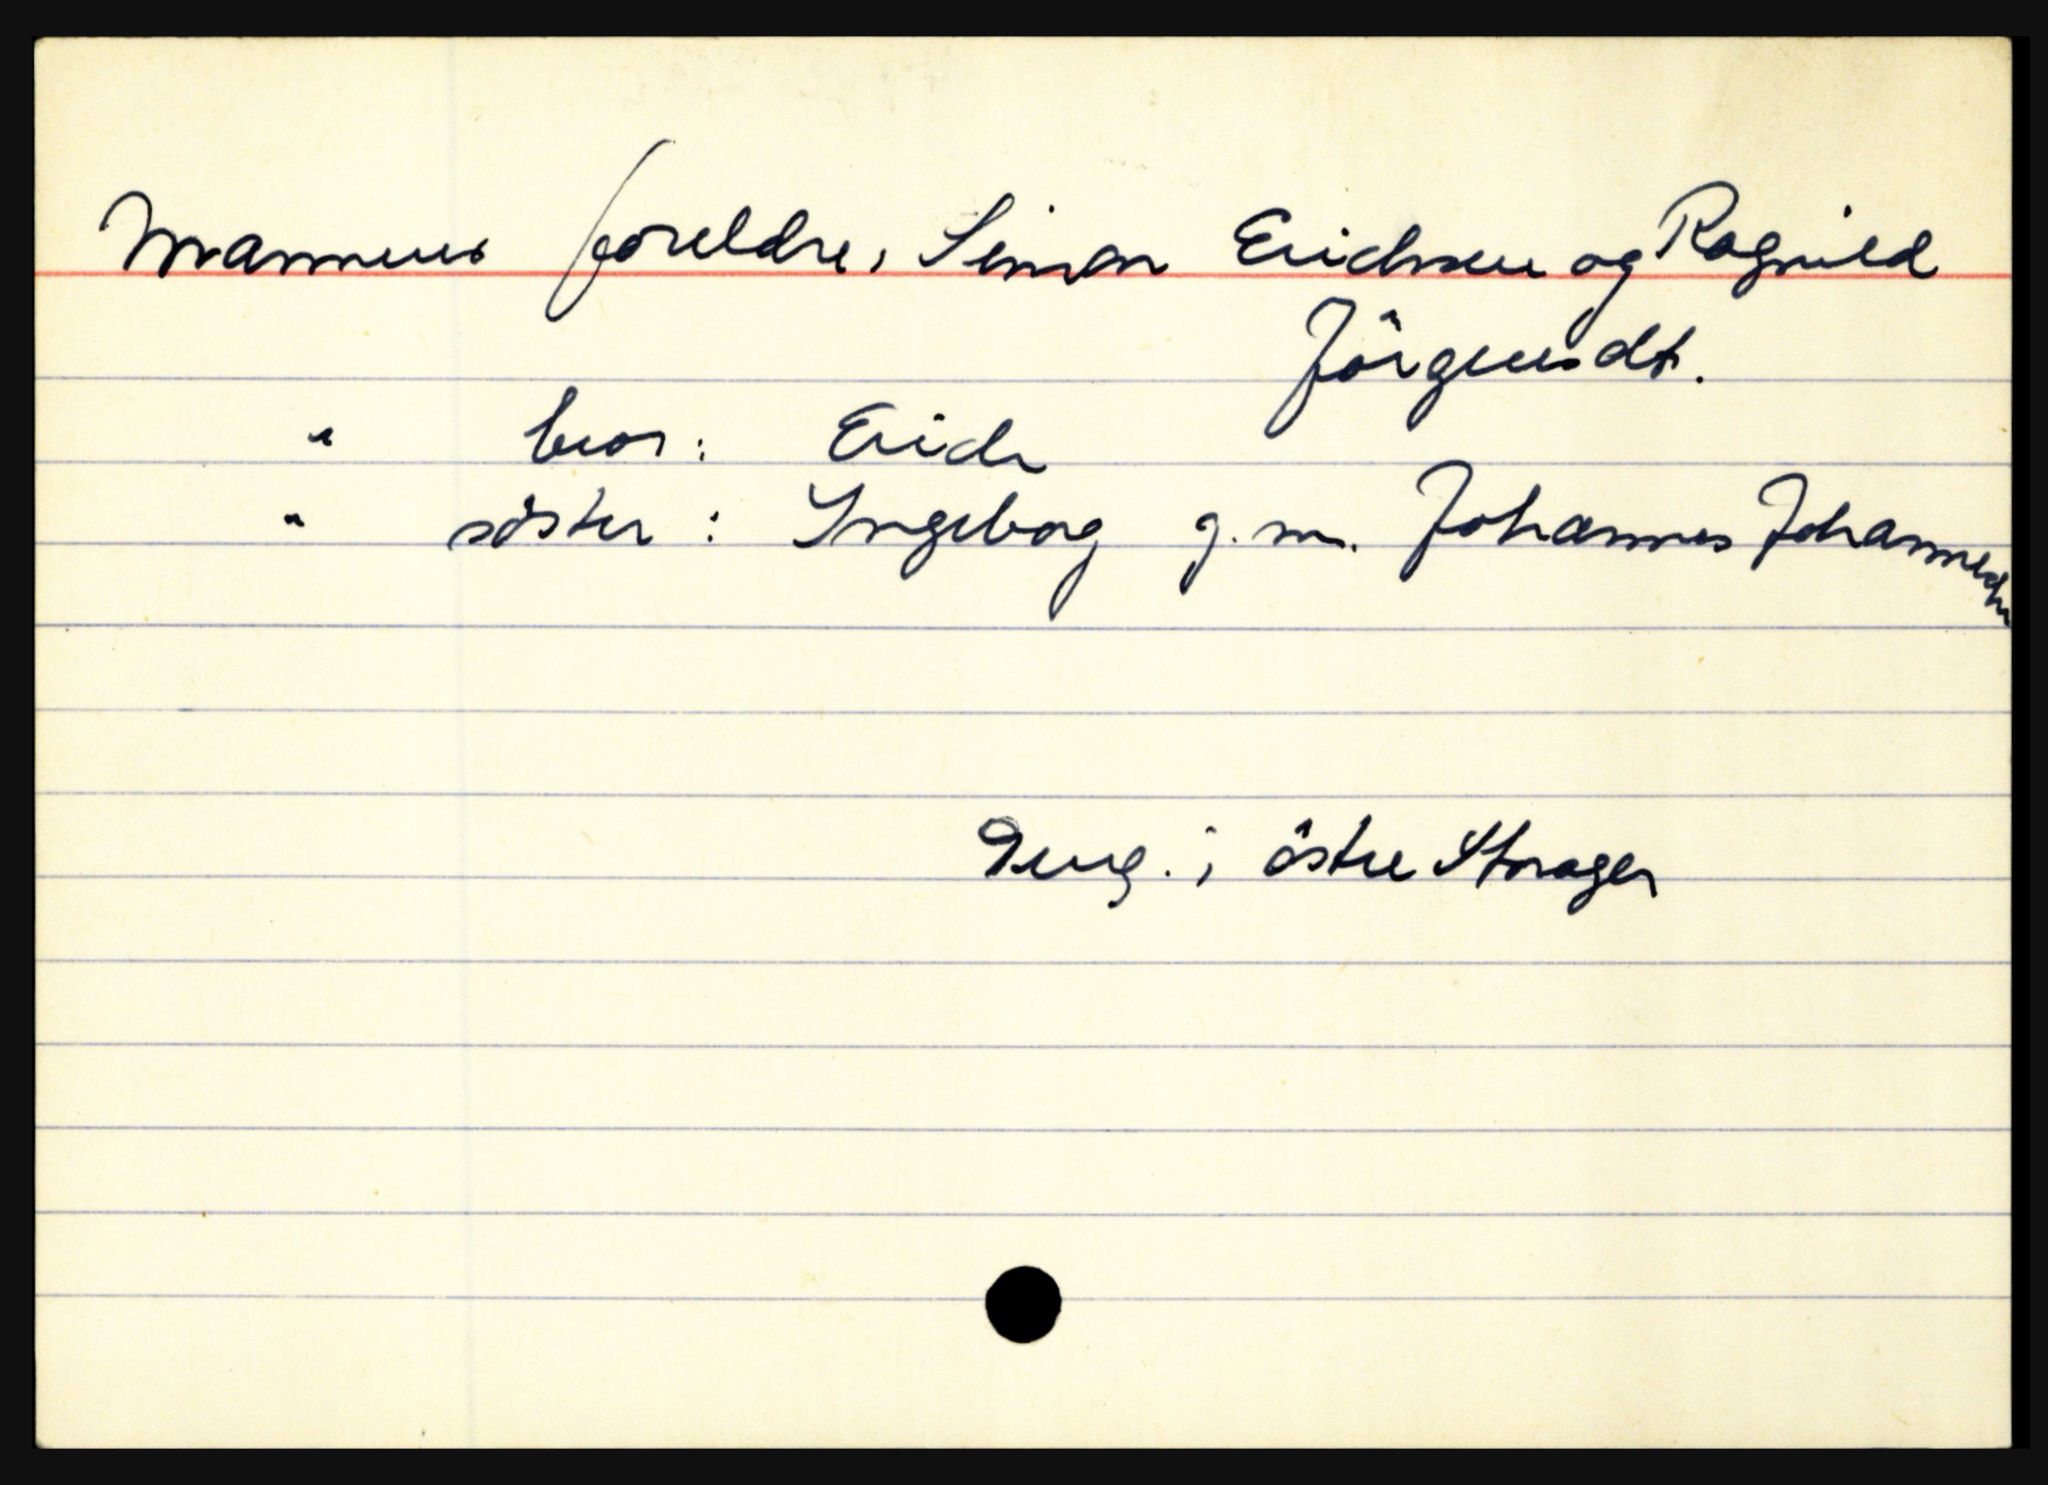 Mannens foreldre, Simen Erichsen og Ragnild
Jörgensdt.
" bror: Erich
" söster: Ingeborg g.m. Johannes Johannesen
Peng. i östre Storager